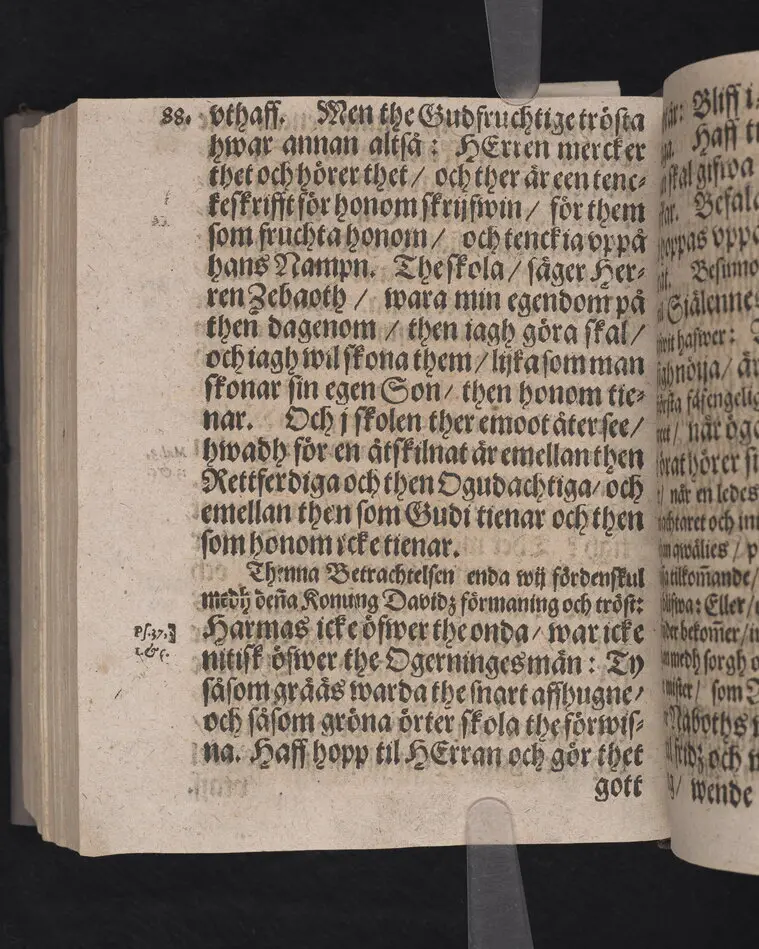 88. vthaff. Men the Gudfruchtige trösta
hwar annan altså: HErren mercker
thet och hörer thet / och ther är een tenc-
keskrifft för honom skrijfwin / för them
som fruchta honom / och tenckia vppå
hans Nampn. The skola / säger Her-
ren Zebaoth / wara min egendom på
then dagenom / then iagh göra skal /
och iagh wil skona them / lijka som man
skonar sin egen Son / then honom tie-
nar. Och j skolen ther emoot åter see /
hwadh för en åtskilnat är emellan then
Rettferdiga och then Ogudachtiga / och
emellan then som Gudi tienar och then
som honom icke tienar.
Thenna Betrachtelsen enda wij fördenskul
medh deña Konung Davidz förmaning och tröst:
Ps. 37. Harmas icke öfwer the onda / war icke
1. &c. nitisk öfwer the Ogerningesmän: Ty
såsom grääs warda the snart affhugne /
och såsom gröna örter skola the förwis-
na. Haff hopp til HErran och gör thet
gott
Bliff i
Haff
skal gifwa
Befal
hoppas vppå
Själennes
när ögo
hörer
och
sorgh
som
Naboths
och
wende